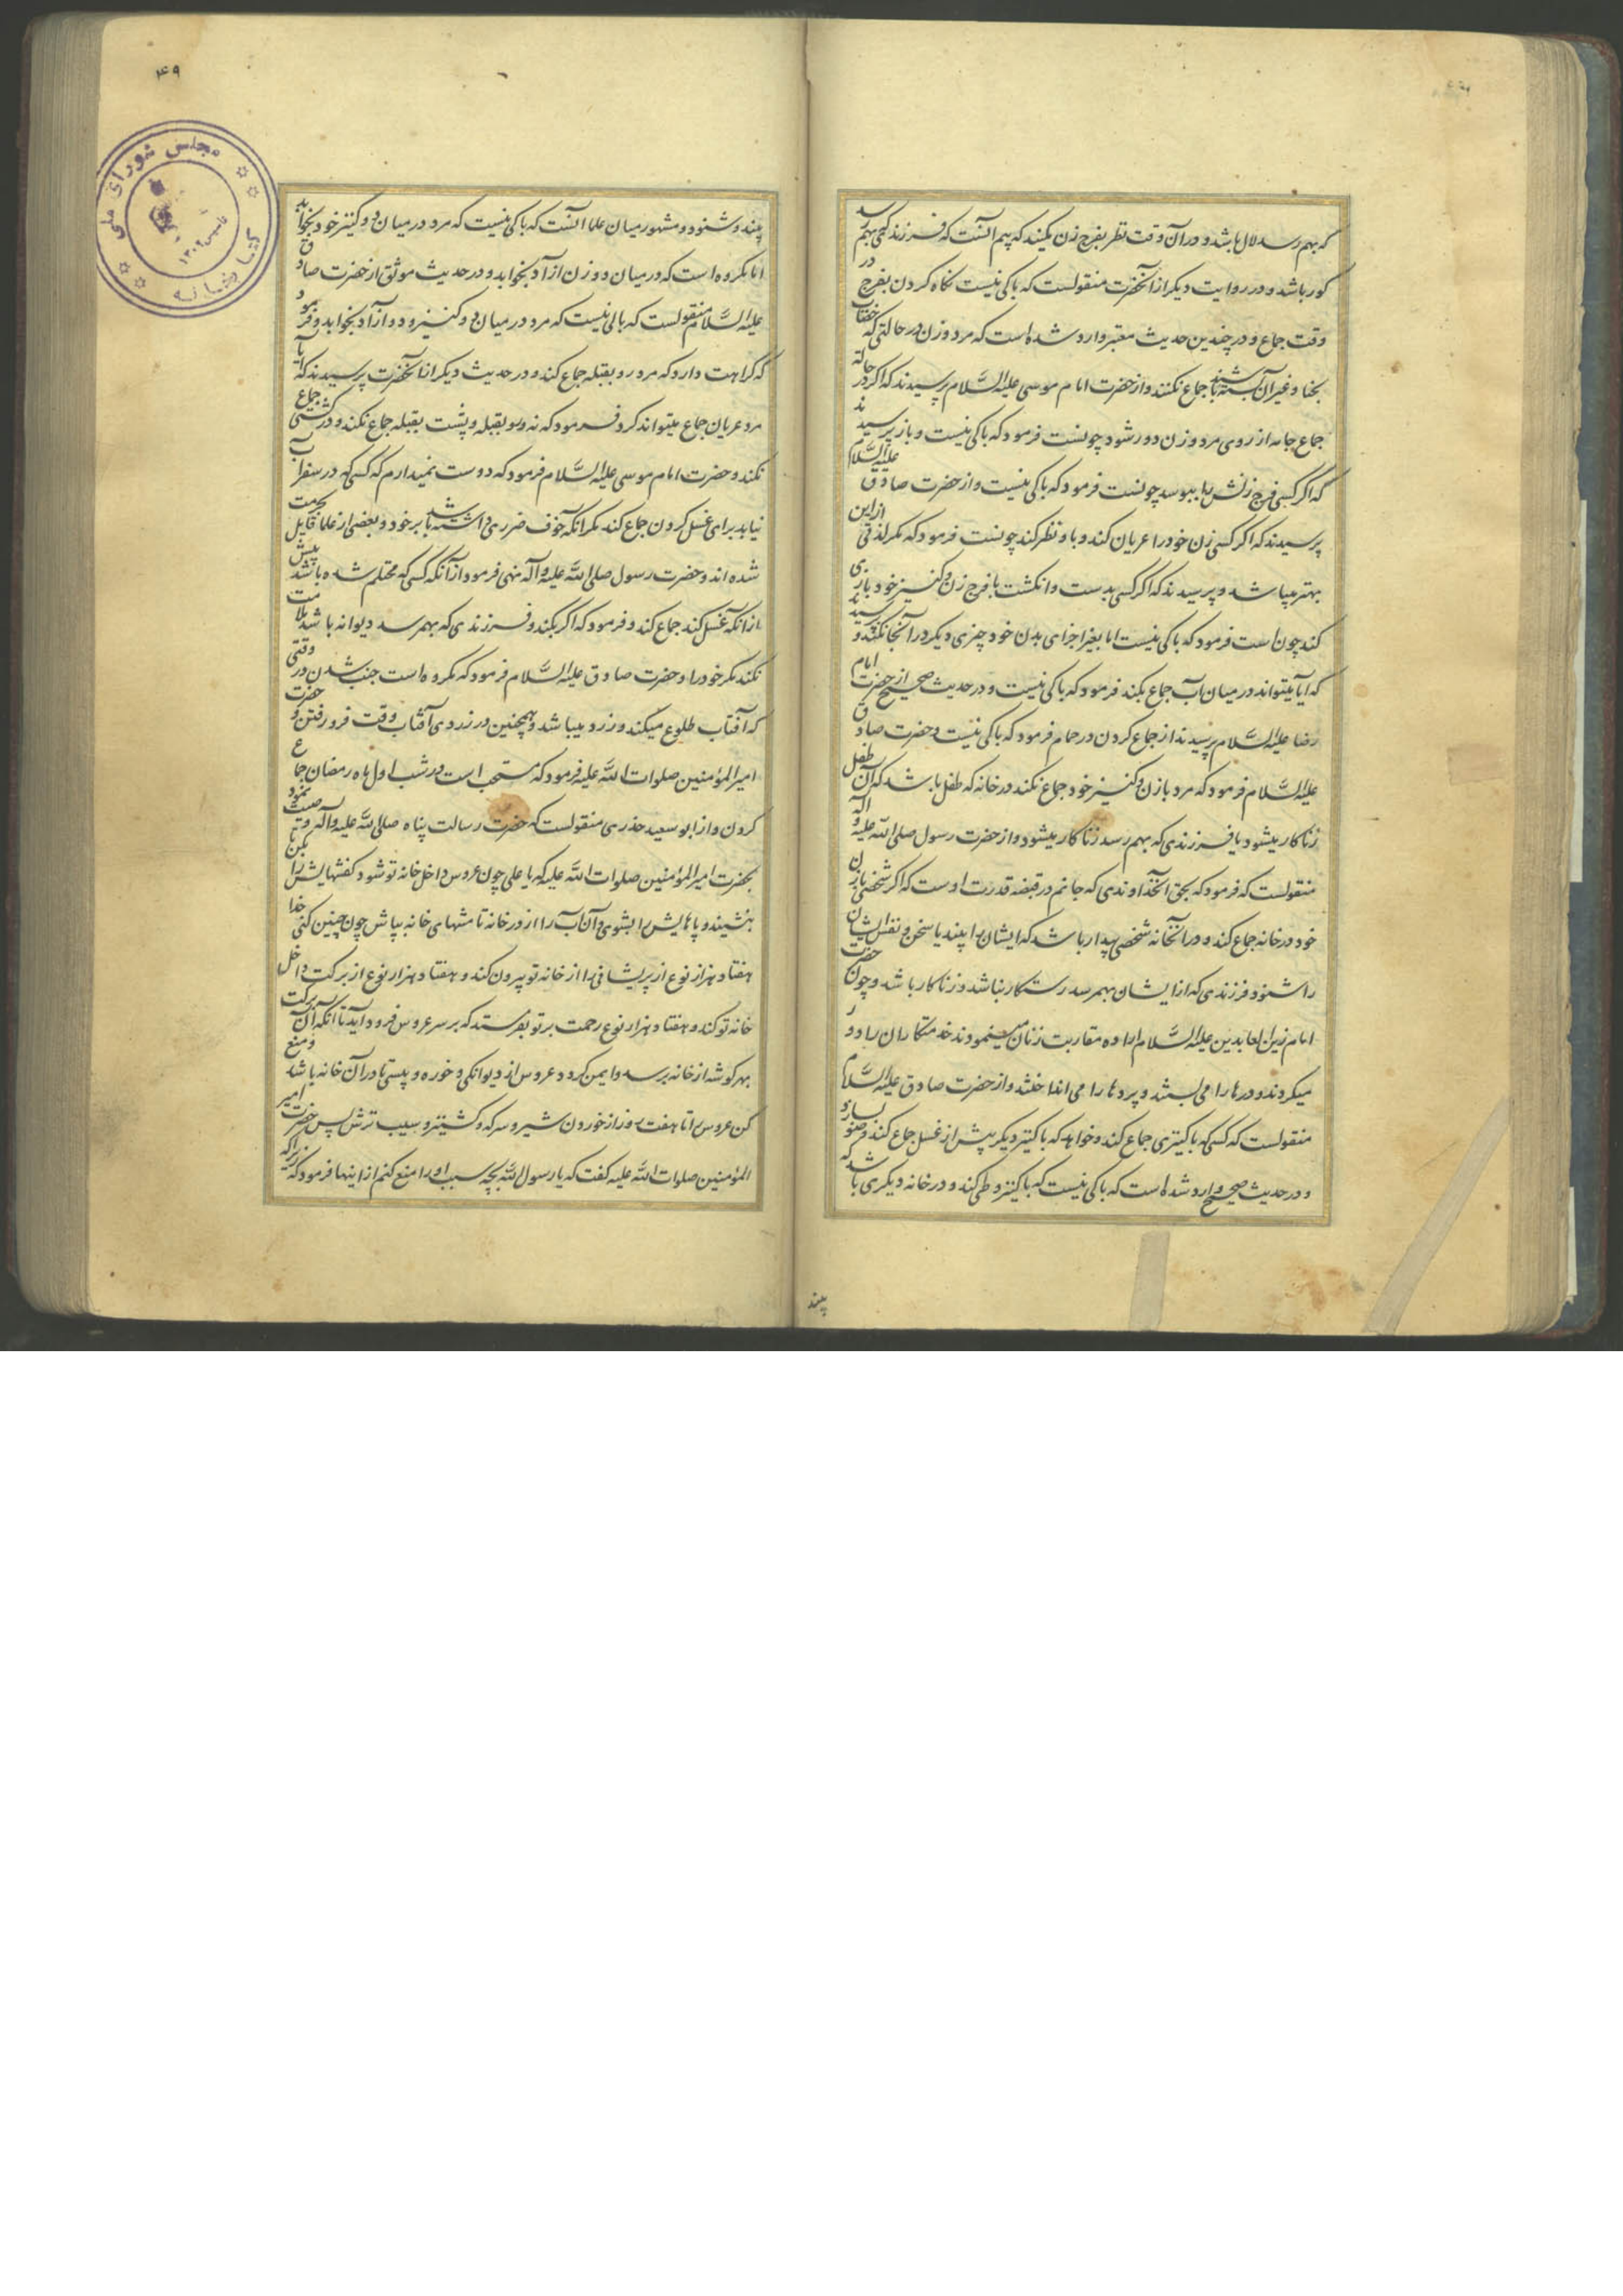 که بهم رسد لال باشد و در آن وقت نظر بفرج زن مکنید که بیم آنست که فرزندیکه بهم رسد
کور باشد و در روایت دیگر از آنحضرت منقولست که باکی نیست نکاه کردن بفرج در
وقت جماع و در چندین حدیث معتبر وارد شده است که مرد و زن در حالتی که خضاب
بحنا و غیر آن بسته باشند جماع نکنند و از حضرت امام موسی علیه السَّلام پرسیدند که اکر در حالة
جماع جامه از روی مرد و زن دور شود چونست فرمود که باکی نیست و باز پرسیدند
که اکر کسی فرج زنش را ببوسد چونست فرمود که باکی نیست و از حضرت صادق علیه السَّلام
پرسیدند که اکر کسی زن خود را عریان کند و باو نظر کند چونست فرمود که مکر لذتی از این
بهتر میباشد و پرسیدند که اکر کسی بدست و انکشت با فرج زن و کنیز خود بازی
کند چون است فرمود که باکی نیست اما بغیر اجزای بدن خود چیزی دیکر در آنجا نکند و پرسیدند
که آیا میتواند در میان آب جماع بکند فرمود که باکی نیست و در حدیث صحیح از حضرت امام
رضا علیه السَّلام پرسیدند از جماع کردن در حمام فرمود که باکی نیست و حضرت صادق
علیه السَّلام فرمود که مرد با زن و کنیز خود جماع نکند در خانه که طفل باشد که آن طفل
زناکار میشود یا فرزندی که بهم رسد زناکار میشود و از حضرت رسول صلی الله علیه و آله
منقولست که فرمود که بحق آنخداوندی که جانم در قبضه قدرت اوست که اکر شخصی با زن
خود در خانه جماع کند و در آنخانه شخصی بیدار باشد که ایشان را بیند یا سخن و نفس ایشان
را شنود فرزندی که از ایشان بهم رسد رستکار نباشد و زناکار باشد و چون حضرت
امام زین العابدین علیه السَّلام اراده مقاربت زنان مینمودند خدمتکاران را دور
میکردند و درها را می بستند و پردها را می انداختند و از حضرت صادق علیه السَّلام
منقولست که کسی که با کنیزی جماع کند و خواهد که با کنیز دیکر پیش از غسل جماع کند وضو بسازد
و در حدیث صحیح وارد شده است که باکی نیست که با کنیز وطی کند و در خانه دیکری باشد که
بیند
۴۹
مجلس شورای ملی
کتابخانه
تاسیس ۱۳۰۲
بیند و شنود و مشهور میان علما آنست که باکی نیست که مرد در میان دو کنیز خود بخوابد
اما مکروه است که در میان دو زن آزاد بخوابد و در حدیث موثق از حضرت صادق
علیه السَّلام منقولست که باکی نیست که مرد در میان دو کنیز و دو آزاد بخوابد و فرمود
که کراهت دارد که مرد رو بقبله جماع کند و در حدیث دیکر از آنحضرت پرسیدند که آیا
مرد عریان جماع میتواند کرد فرمود که نه و رو بقبله و پشت بقبله جماع نکند و در کشتی جماع
نکند و حضرت امام موسی علیه السَّلام فرمود که دوست نمیدارم که کسی که در سفر آب
نیابد برای غسل کردن جماع کند مکر آنکه خوف ضرری داشته باشد بر خود و بعضی از علما قایل بحرمت
شده اند و حضرت رسول صلی الله علیه و آله نهی فرمود از آنکه کسی که محتلم شده باشد پیش
از آنکه غسل کند جماع کند و فرمود که اکر بکند و فرزندی که بهمرسد دیوانه باشد ملامت
نکند مکر خود را و حضرت صادق علیه السَّلام فرمود که مکروه است جنب شدن در وقتی
که آفتاب طلوع میکند و زرد میباشد و همچنین در زردی آفتاب وقت فرو رفتن و حضرت
امیر المؤمنین صلوات الله علیه فرمود که مستحب است در شب اول ماه رمضان جماع
کردن و از ابو سعید خدری منقولست که حضرت رسالت پناه صلی الله علیه و آله وصیت نمود
بحضرت امیر المؤمنین صلوات الله علیه که یا علی چون عروس داخل خانه تو شود کفشهایش را بکن تا
بنشیند و پاهایش را بشوی و آن آب را از در خانه تا منتهای خانه بپاش چون چنین کنی خدا
هفتاد هزار نوع از پریشانی را از خانه تو بیرون کند و هفتاد هزار نوع از برکت داخل
خانه تو کند و هفتاد هزار نوع رحمت بر تو بفرستد که بر سر عروس فرود آید تا آنکه آن برکت
بهر کوشه از خانه برسد و ایمن کردد عروس از دیوانکی و خوره و پیسی تا در آن خانه باشد و منع
کن عروس را تا هفت روز از خوردن شیر و سرکه و کشنیز و سیب ترش پس حضرت امیر
المؤمنین صلوات الله علیه کفت که یا رسول الله بچه سبب او را منع کنم از اینها فرمود که زیرا که